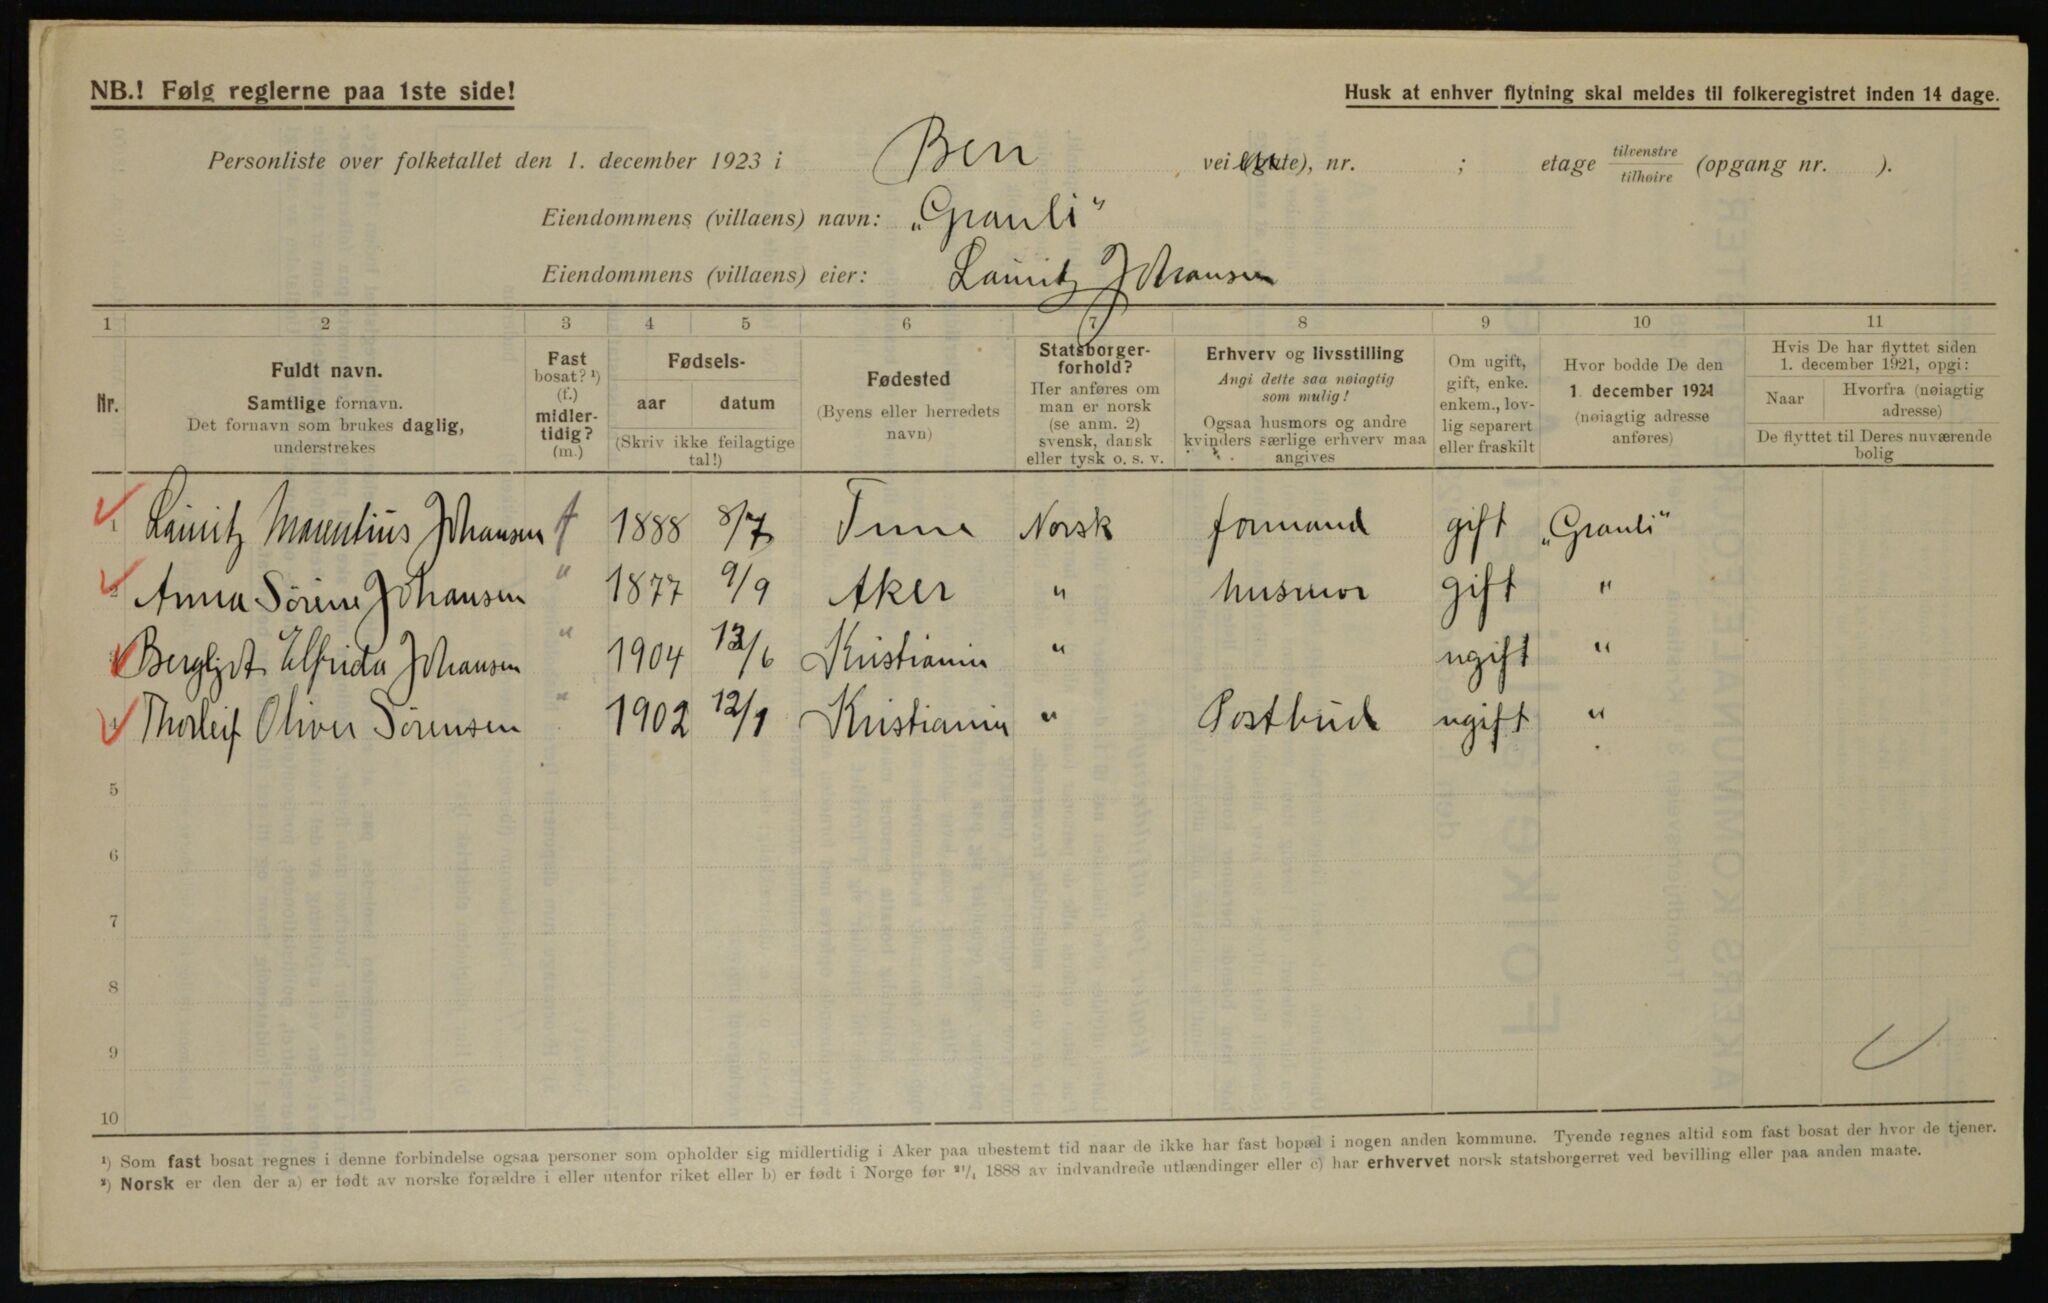 NB.! Følg reglerne paa 1ste side!
Husk at enhver flytning skal meldes til folkeregistret inden 14 dage.
Personliste over folketallet den 1. december 1923 i Ben vei (gate), nr. ; etage tilvenstre tilhøire (opgang nr. ).
Eiendommens (villaens) navn: „Granli“
Eiendommens (villaens) eier: Lauritz Johansen
1 2 3 4 5 6 7 8 9 10 11
Nr.
Fuldt navn.
Samtlige fornavn.
Det fornavn som brukes daglig,
understrekes
Fast
bosat? ¹)
(f.)
midler-
tidig?
(m.)
Fødsels-
aar datum
(Skriv ikke feilagtige
tal!)
Fødested
(Byens eller herredets
navn)
Statsborger-
forhold?
Her anføres om
man er norsk
(se anm. 2)
svensk, dansk
eller tysk o. s. v.
Erhverv og livsstilling
Angi dette saa nøiagtig
som mulig!
Ogsaa husmors og andre
kvinders særlige erhverv maa
angives
Om ugift,
gift, enke.
enkem., lov-
lig separert
eller fraskilt
Hvor bodde De den
1. december 1921
(nøiagtig adresse
anføres)
Hvis De har flyttet siden
1. december 1921, opgi:
Naar
Hvorfra (nøiagtig
adresse)
De flyttet til Deres nuværende
bolig
1 Lauritz Johansen f 1888 8/7 Norsk formand gift „Granli“
2 Anna Sørine Johansen " 1877 9/9 Aker " husmor gift "
3 Bergljot Elfrida Johansen " 1904 /6 Kristiania " ugift "
4 Thorleif Oliver Sørensen " 1902 12/1 Kristiania " Postbud ugift "
5
6
7
8
9
10
¹) Som fast bosat regnes i denne forbindelse ogsaa personer som opholder sig midlertidig i Aker paa ubestemt tid naar de ikke har fast bopæl i nogen anden kommune. Tyende regnes altid som fast bosat der hvor de tjener.
²) Norsk er den der a) er født av norske forældre i eller utenfor riket eller b) er født i Norge før ²¹/₄ 1888 av indvandrede utlændinger eller c) har erhvervet norsk statsborgerret ved bevilling eller paa anden maate.